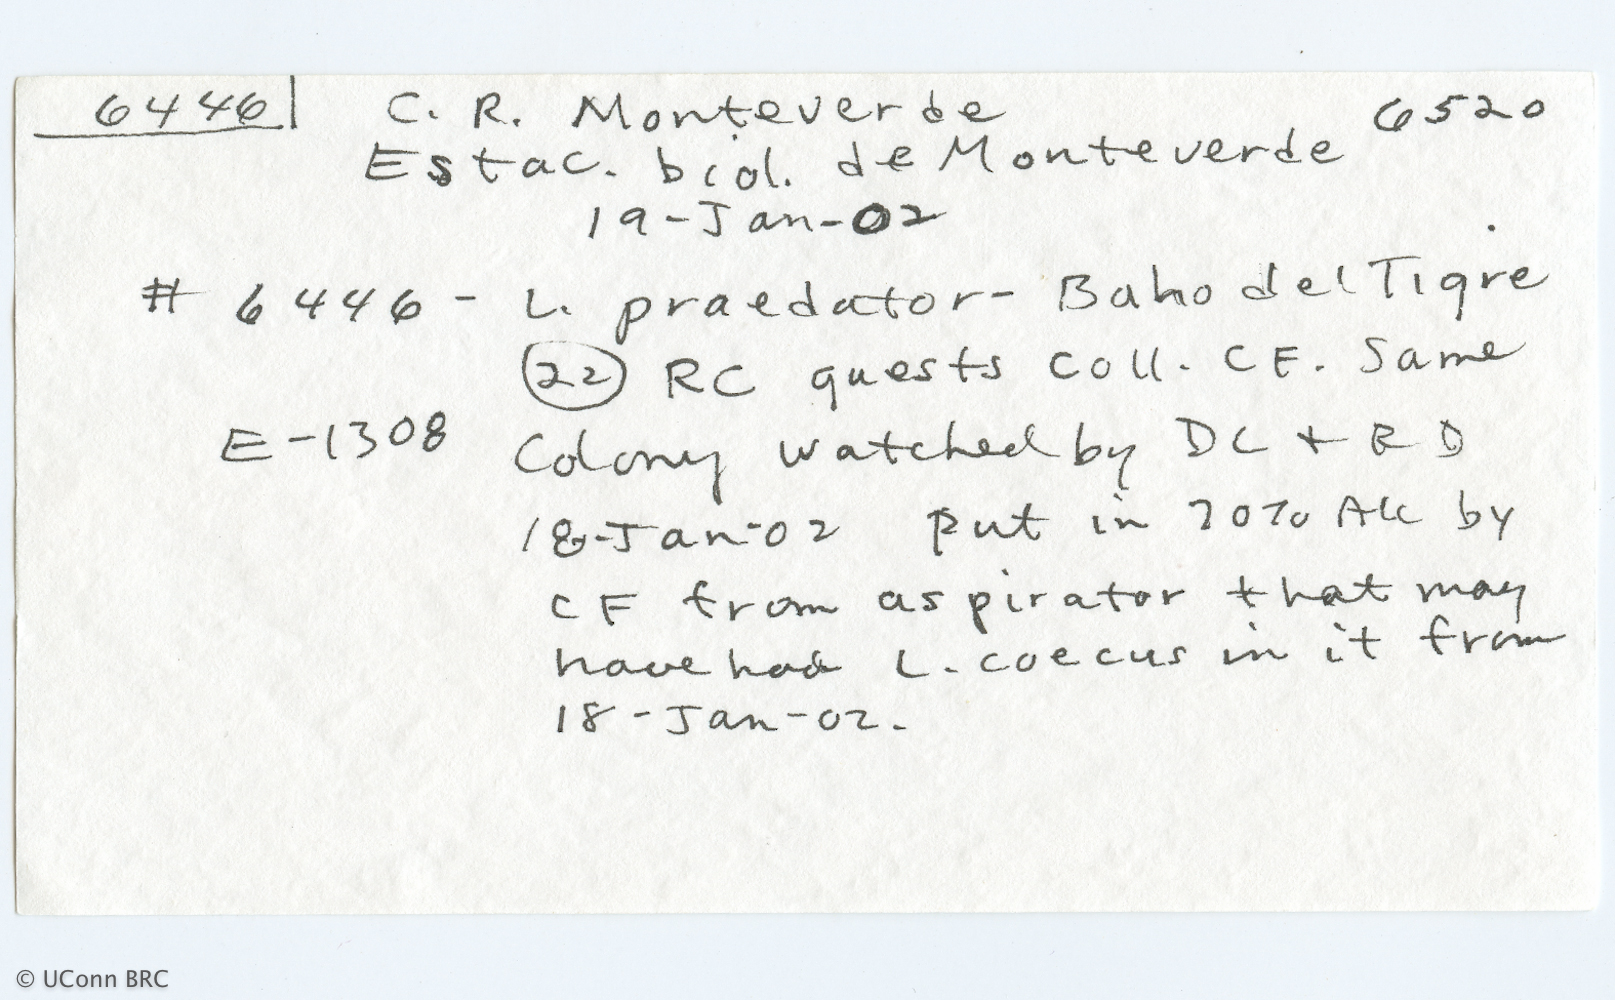 6446 C. R. Monteverde 6520
Estac. biol. de Monteverde
19-Jan-02
# 6446 - L. praedator - Baho del Tigre
22 RC guests coll. CF. Same
E-1308 Colony watched by DC + RD
18-Jan-02 put in 70% Alc by
CF from aspirator that may
have had L. coecus in it from
18-Jan-02.
© UConn BRC